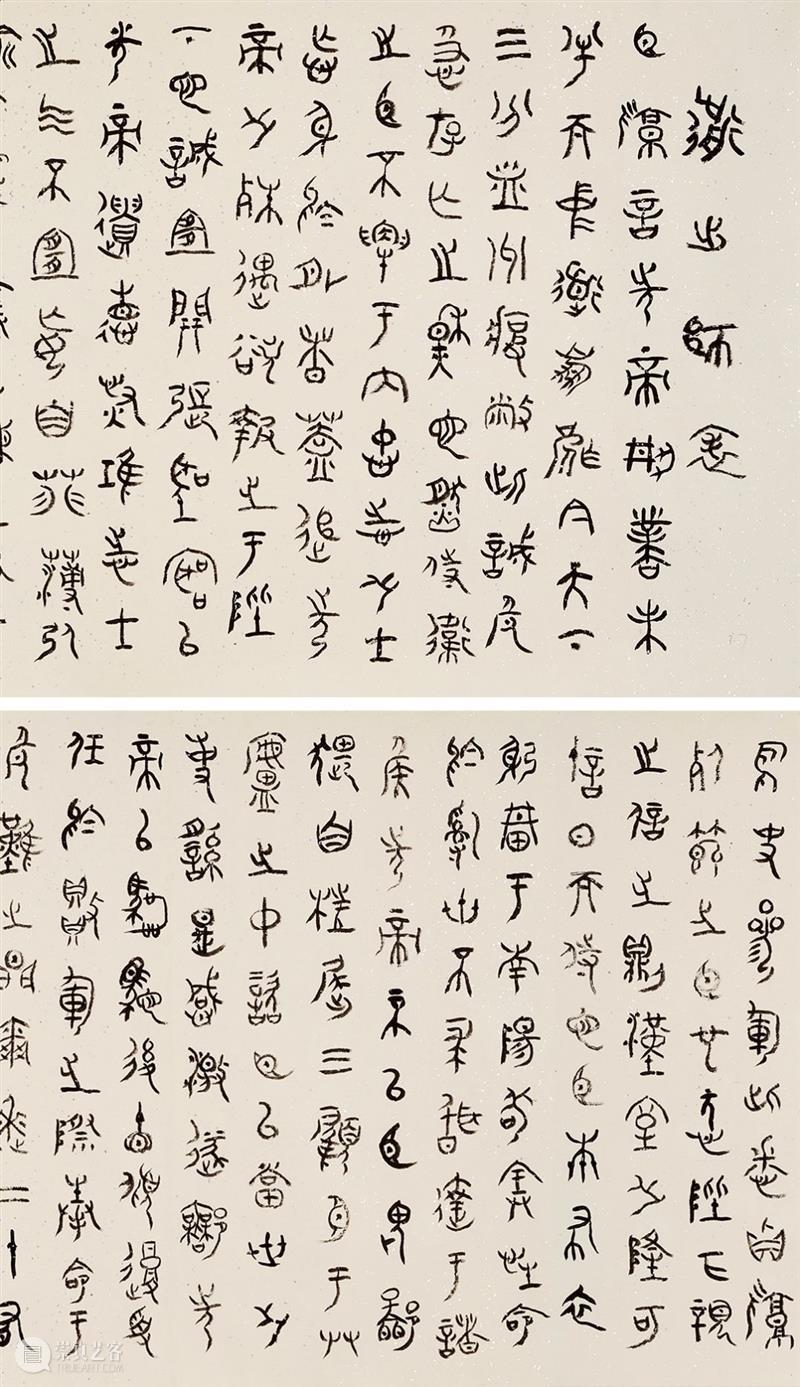 前出師表
臣亮言先帝創業未
半而中道崩殂今天下
三分益州疲敝此誠危
急存亡之秋也然侍衛
之臣不懈于内忠志之士
忘身於外者蓋追先
帝之殊遇欲報之于陛
下也誠宜開張聖聽以
光帝遺德恢弘志士
之氣不宜妄自菲薄引
長史參軍此悉貞亮
死節之臣也願陛下親
之信之則漢室之隆可
計日而待也臣本布衣
躬耕于南陽苟全性命
於亂世不求聞達于諸
侯先帝不以臣卑鄙
猥自枉屈三顧臣于艸
廬之中諮臣以當世之
事繇是感激遂許先
帝以驅馳後值傾覆受
任於敗軍之際奉命于
危難之間爾來二十有
崇真艺客
TRUEART.COM